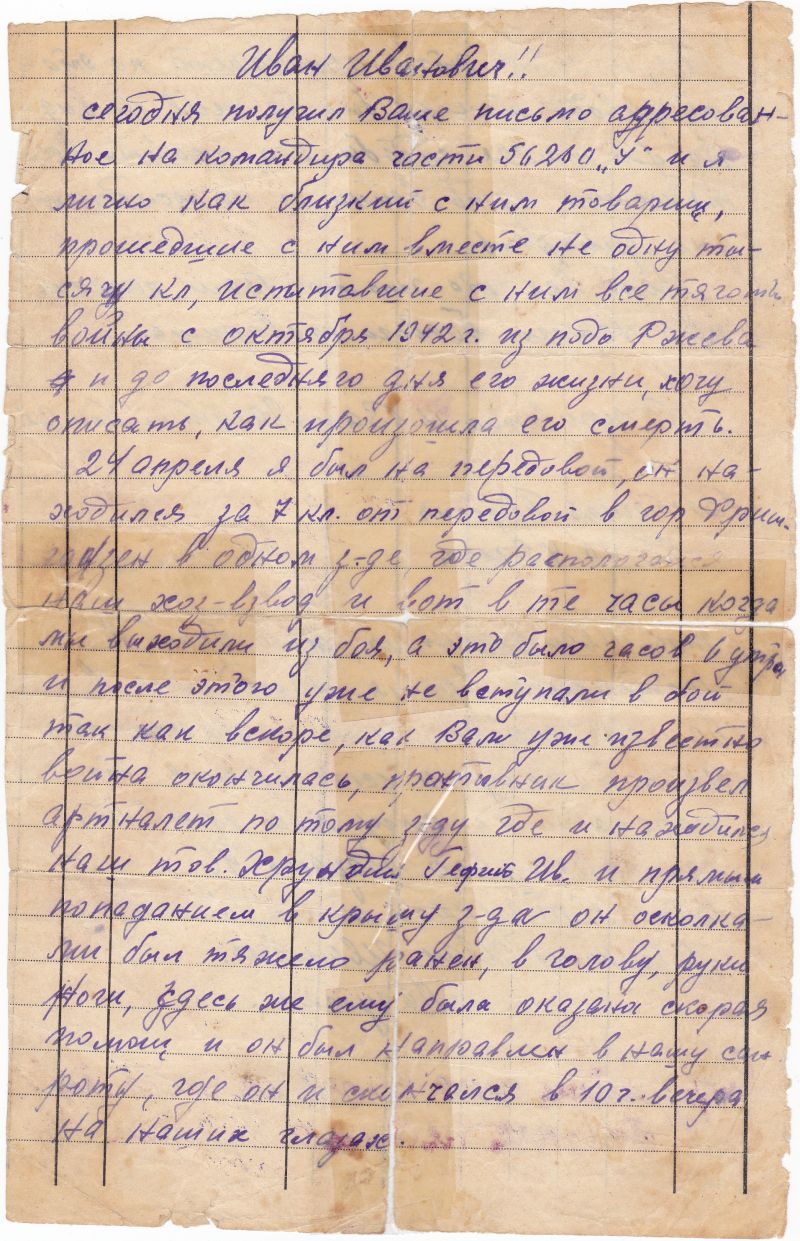 Иван Иванович!!
сегодня получил Ваше письмо адресован-
ное на командира части 56280 „У" и я
лично как близкий с ним товарищ,
прошедшие с ним вместе не одну ты-
сячу кл, испытавшие с ним все тяготы
войны с октября 1942 г. из подо Ржева
и до последняго дня его жизни, хочу
описать, как произошла его смерть.
24 апреля я был на передовой, он на-
ходился за 7 кл. от передовой в гор Фриш-
в одном з-де, где располагался
наш хоз-взвод и вот в те часы когда
мы выходили из боя, а это было часов 6 утра
и после этого уже не вступали в бой
так как вскоре, как Вам уже известно
война окончилась, противник произвел
артналет по тому з-ду где и находился
наш тов. Ив. и прямым
попаданием в крышу з-да он осколка-
ми был тяжело ранен, в голову, руки
ноги, здесь же ему была оказана скорая
помощ и он был направлен в нашу сан
роту, где он и скончался в 10 г. вечера
на наших глазах.